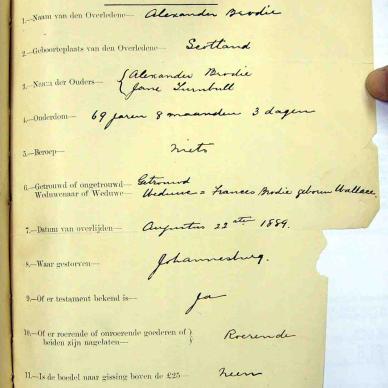 1.—Naam van den Overledene— Alexander Brodie
2.—Geboorteplaats van den Overledene— Scotland
3.—Naam der Ouders— { Alexander Brodie
Jane Turnbull
4.—Ouderdom— 69 jaren 8 maanden 3 dagen
5.—Beroep— niets
6.—Getrouwd of ongetrouwd— Getrouwd
Weduwenaar of Weduwe— Weduwe = Frances Brodie geboren Wallace.
7.—Datum van overlijden— Augustus 22 1889.
8.—Waar gestorven— Johannesburg.
9.—Of er testament bekend is— Ja
10.—Of er roerende of onroerende goederen of }
beiden zijn nagelaten— Roerende
11.—Is de boedel naar gissing boven de £25— neen